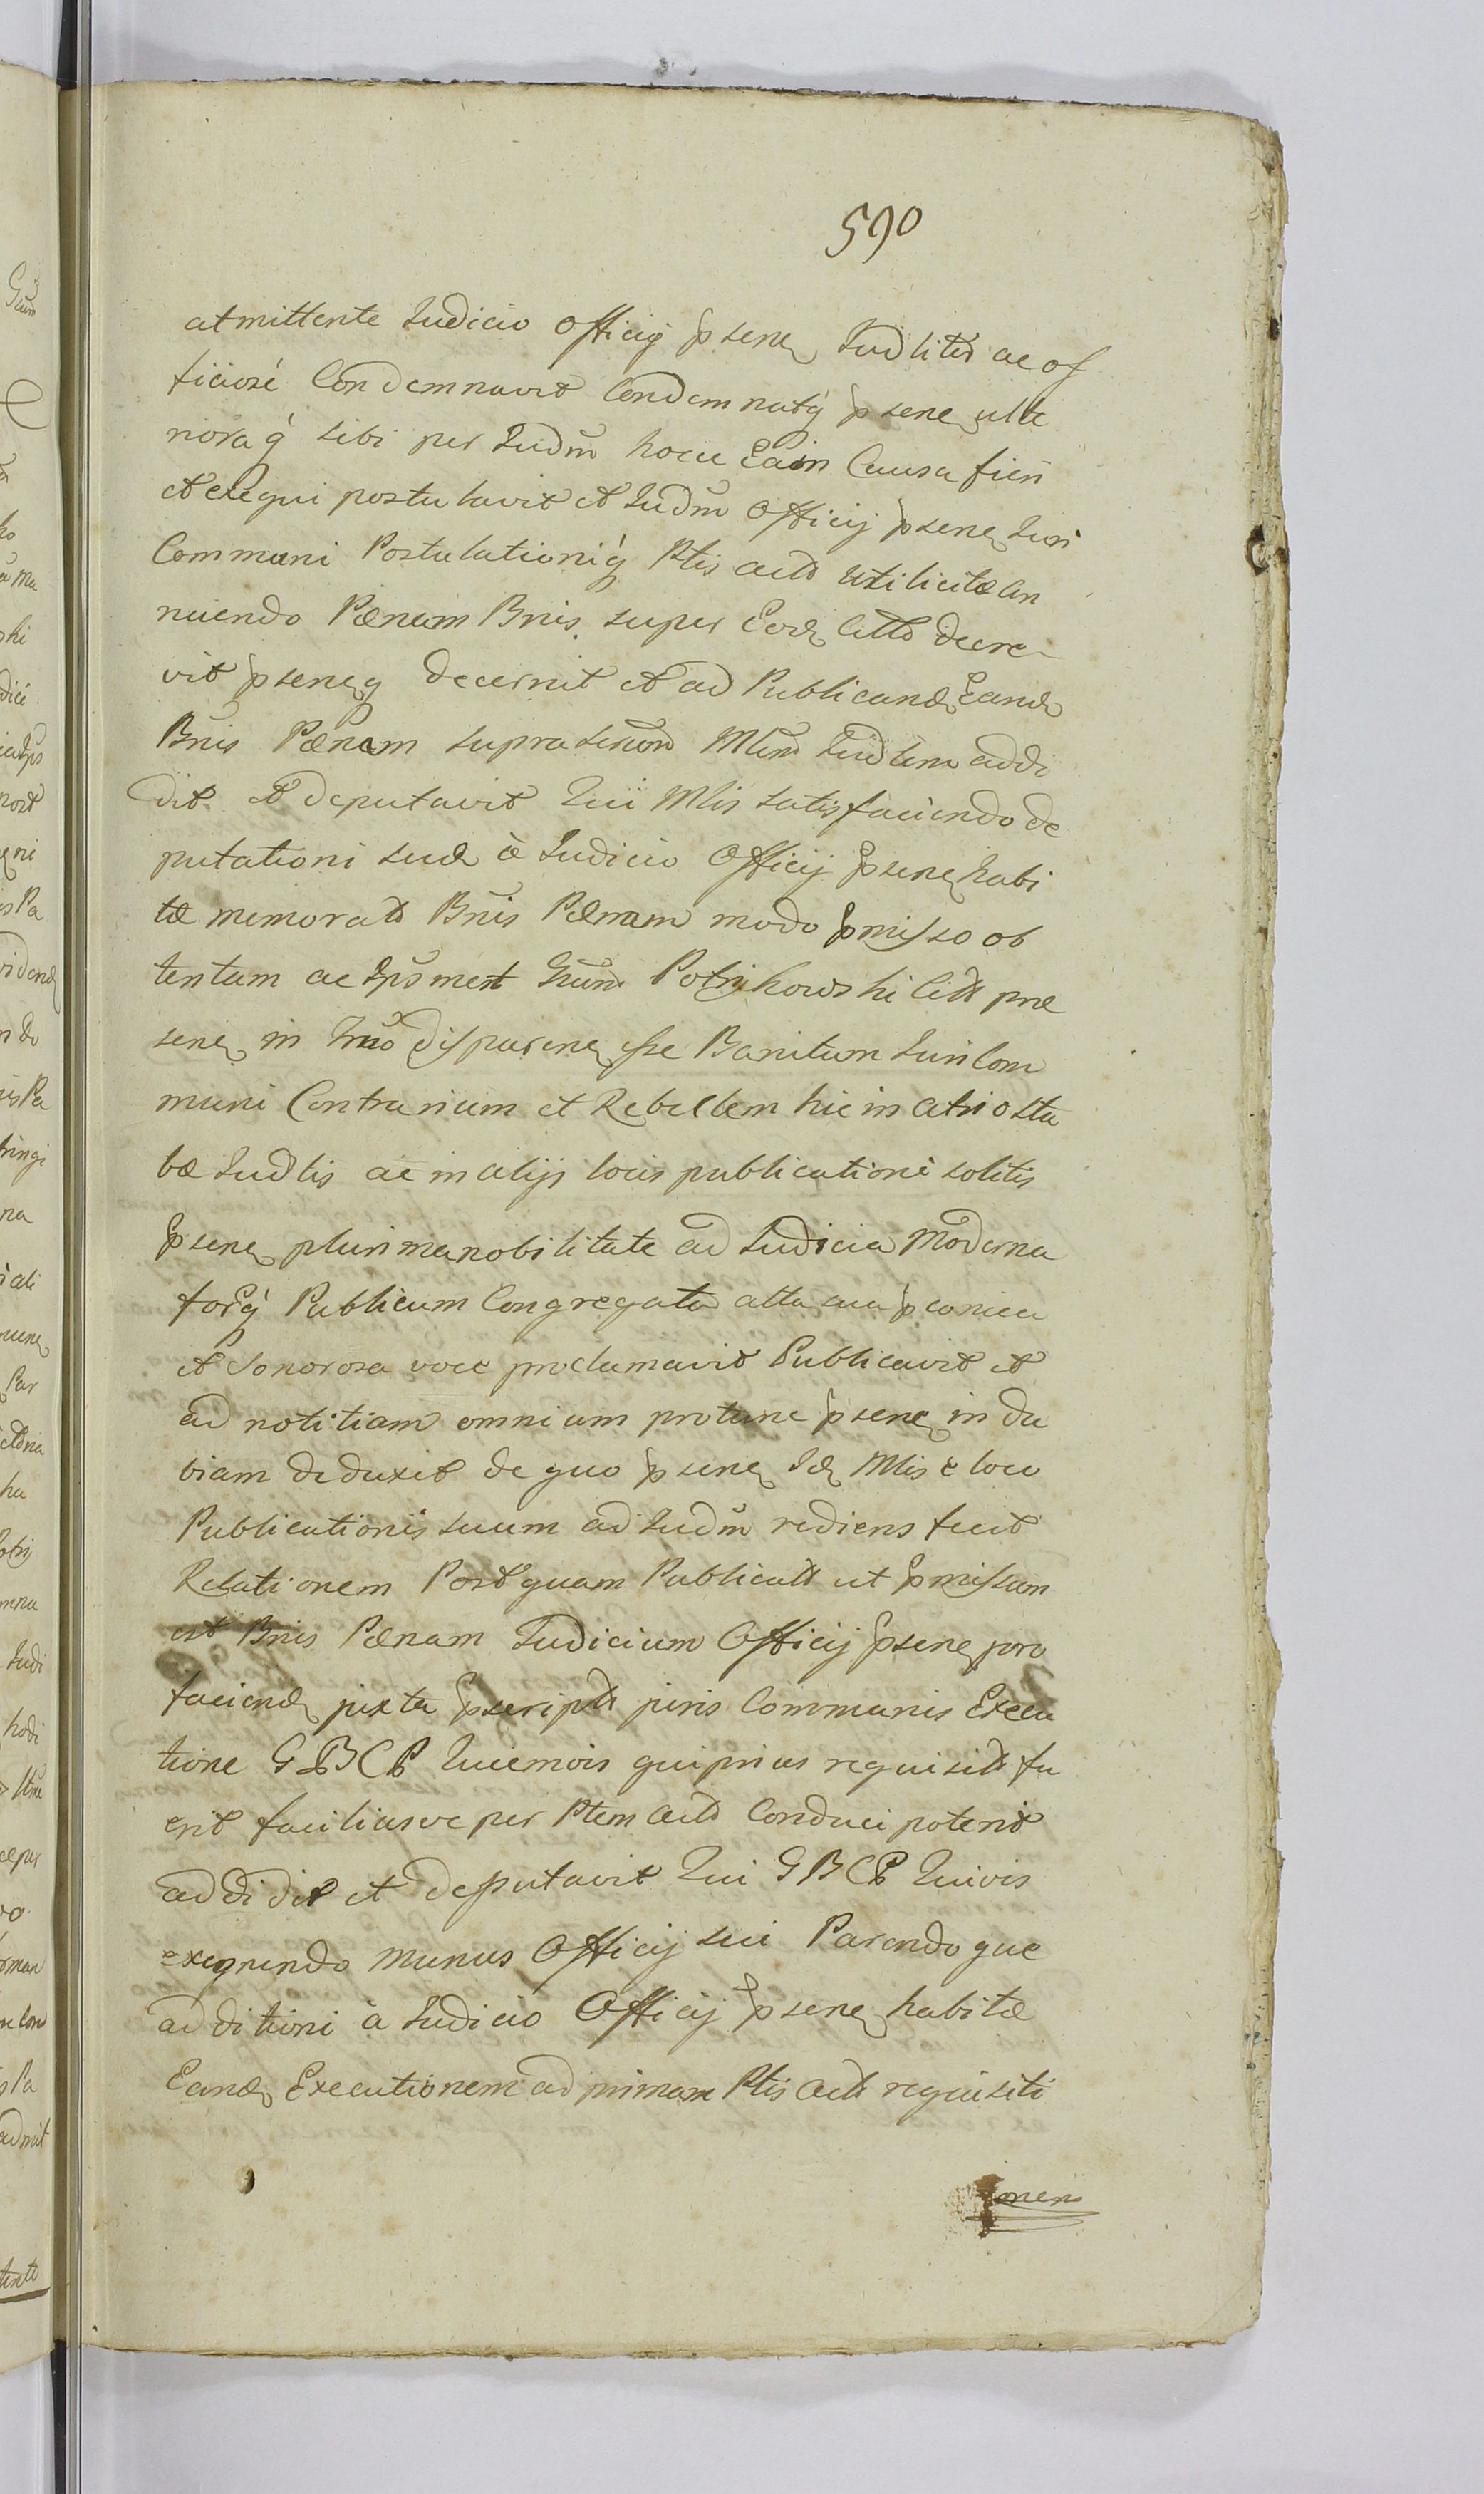 590
atmittente Iudicio Officij psene Iudliter ac of
ficiose Condemnavit Condemnatq psene ulte
riora q sibi per Iudm hocce Ea in Causa fieri
et exequi postulavit et Iudm Officij psene Iuri
Communi Postulationiq Ptis actd Utilicitæ An
nuendo Pænam Bnis super Eod Cittd decre-
vit pseneq decernit et ad Publicand Eand
Bnis Pænam suprascriptum Mlem Iudlem addi
dit et deputavit Qui Mlis satisfaciendo de
putationi suæ à Iudicio Officij psene habi
tæ memoratd Bnis Pænam modo pmisso ob
tentam ac Ipsmet Gsum Potrykowski Citt præ
sene in Trno disparene esse Banitum Iuri Com
muni Contrarium et Rebellem hic in atrio stu
bæ Iudlis ac in alijs locis publicationi solitis
psene plurima nobilitate ad Iudicia Moderna
forq Publicum Congregata alta sua pconica
et Sonorosa voce proclamavit Publicavit et
ad notitiam omnium protunc psene in du
biam deduxit de quo psene Id Mlis è loco
Publicationis suum ad Iudm rediens fecit
Relationem Post quam Publicatt ut pmissum
est Bnis Pænam Iudicium Officij psene pro
faciend juxta pscriptt juris Communis Execu
tione G B C P Quemvis qui prius requisitt fu
erit faciliusve per Ptem Actd Conduci poterit
addidit et deputavit Qui G B C P Quivis
exequendo munus Officij sui Parendo que
additioni à Iudicio Officij psene habitæ
Eand Executionem ad primam Ptis Actd requisiti
onem